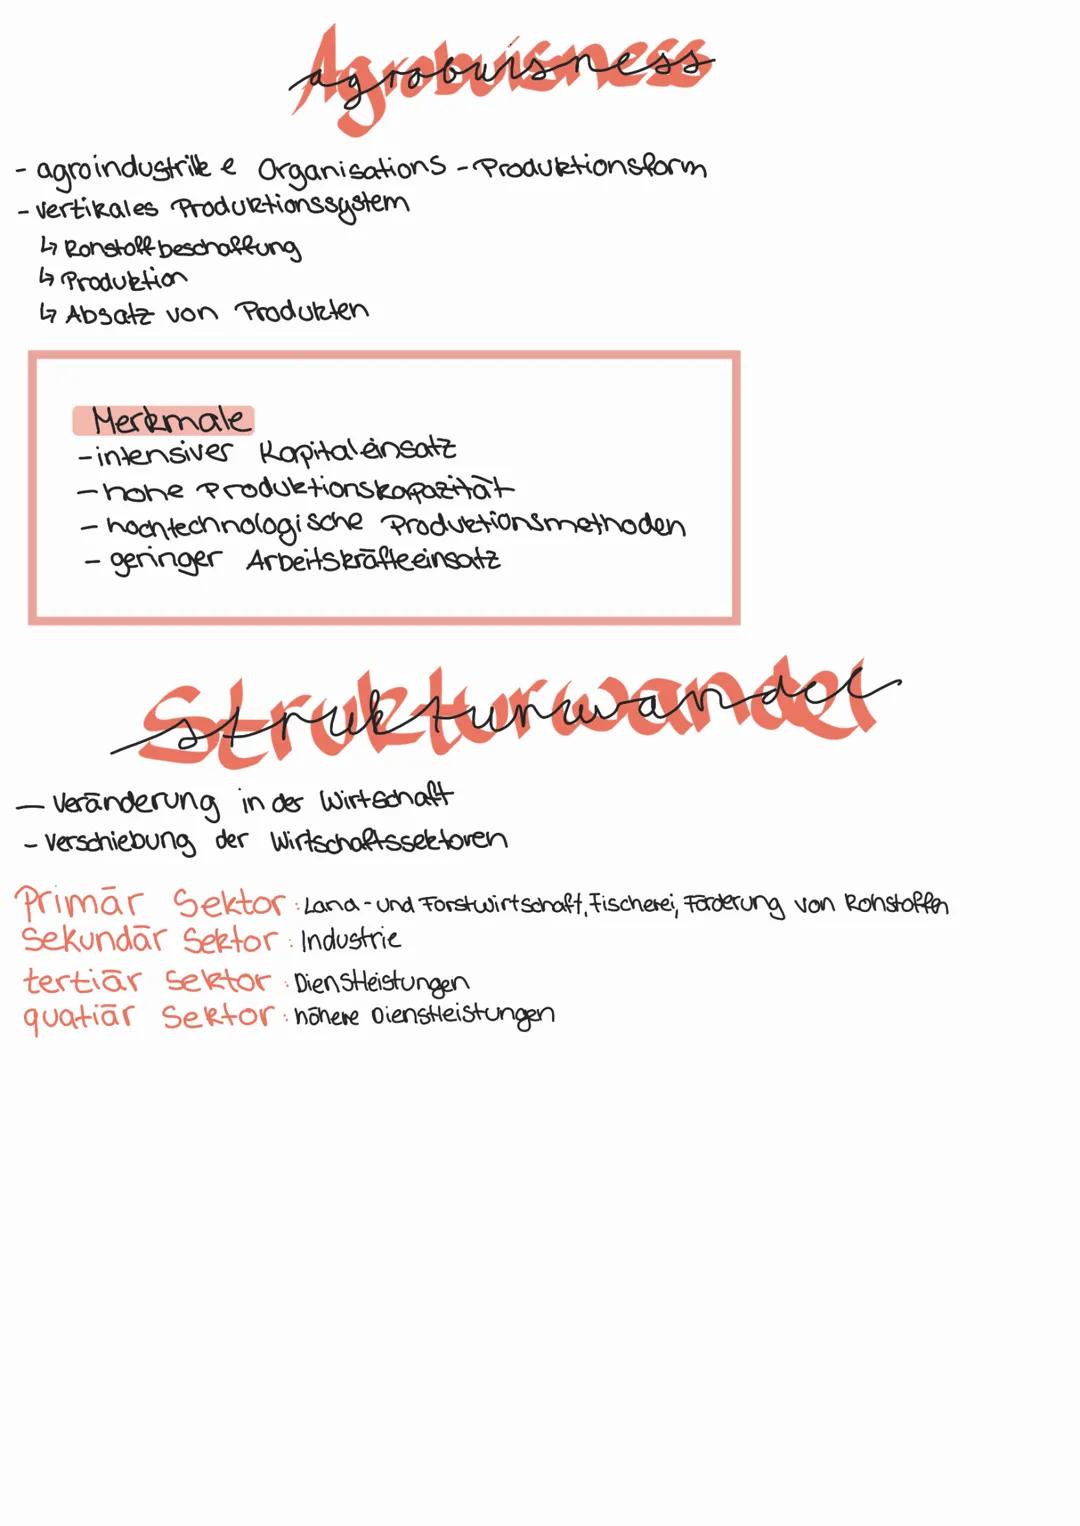 Agrobuisness
- agroindustrille e Organisations - Produktionsform
- vertikales Produktionssystem
↳ Rohstoffbeschaffung
↳ Produktion
↳ Absatz von Produkten
Merkmale
- intensiver Kapitaleinsatz
- hohe Produktionskapazität
- hochtechnologische Produktionsmethoden
- geringer Arbeitskräfteeinsatz
Strukturwandel
- Veränderung in der Wirtschaft
- Verschiebung der Wirtschaftssektoren
Primär Sektor : Land- und Forstwirtschaft, Fischerei, Förderung von Rohstoffen
Sekundär Sektor : Industrie
tertiär Sektor : Dienstleistungen
quatiär Sektor : höhere Dienstleistungen